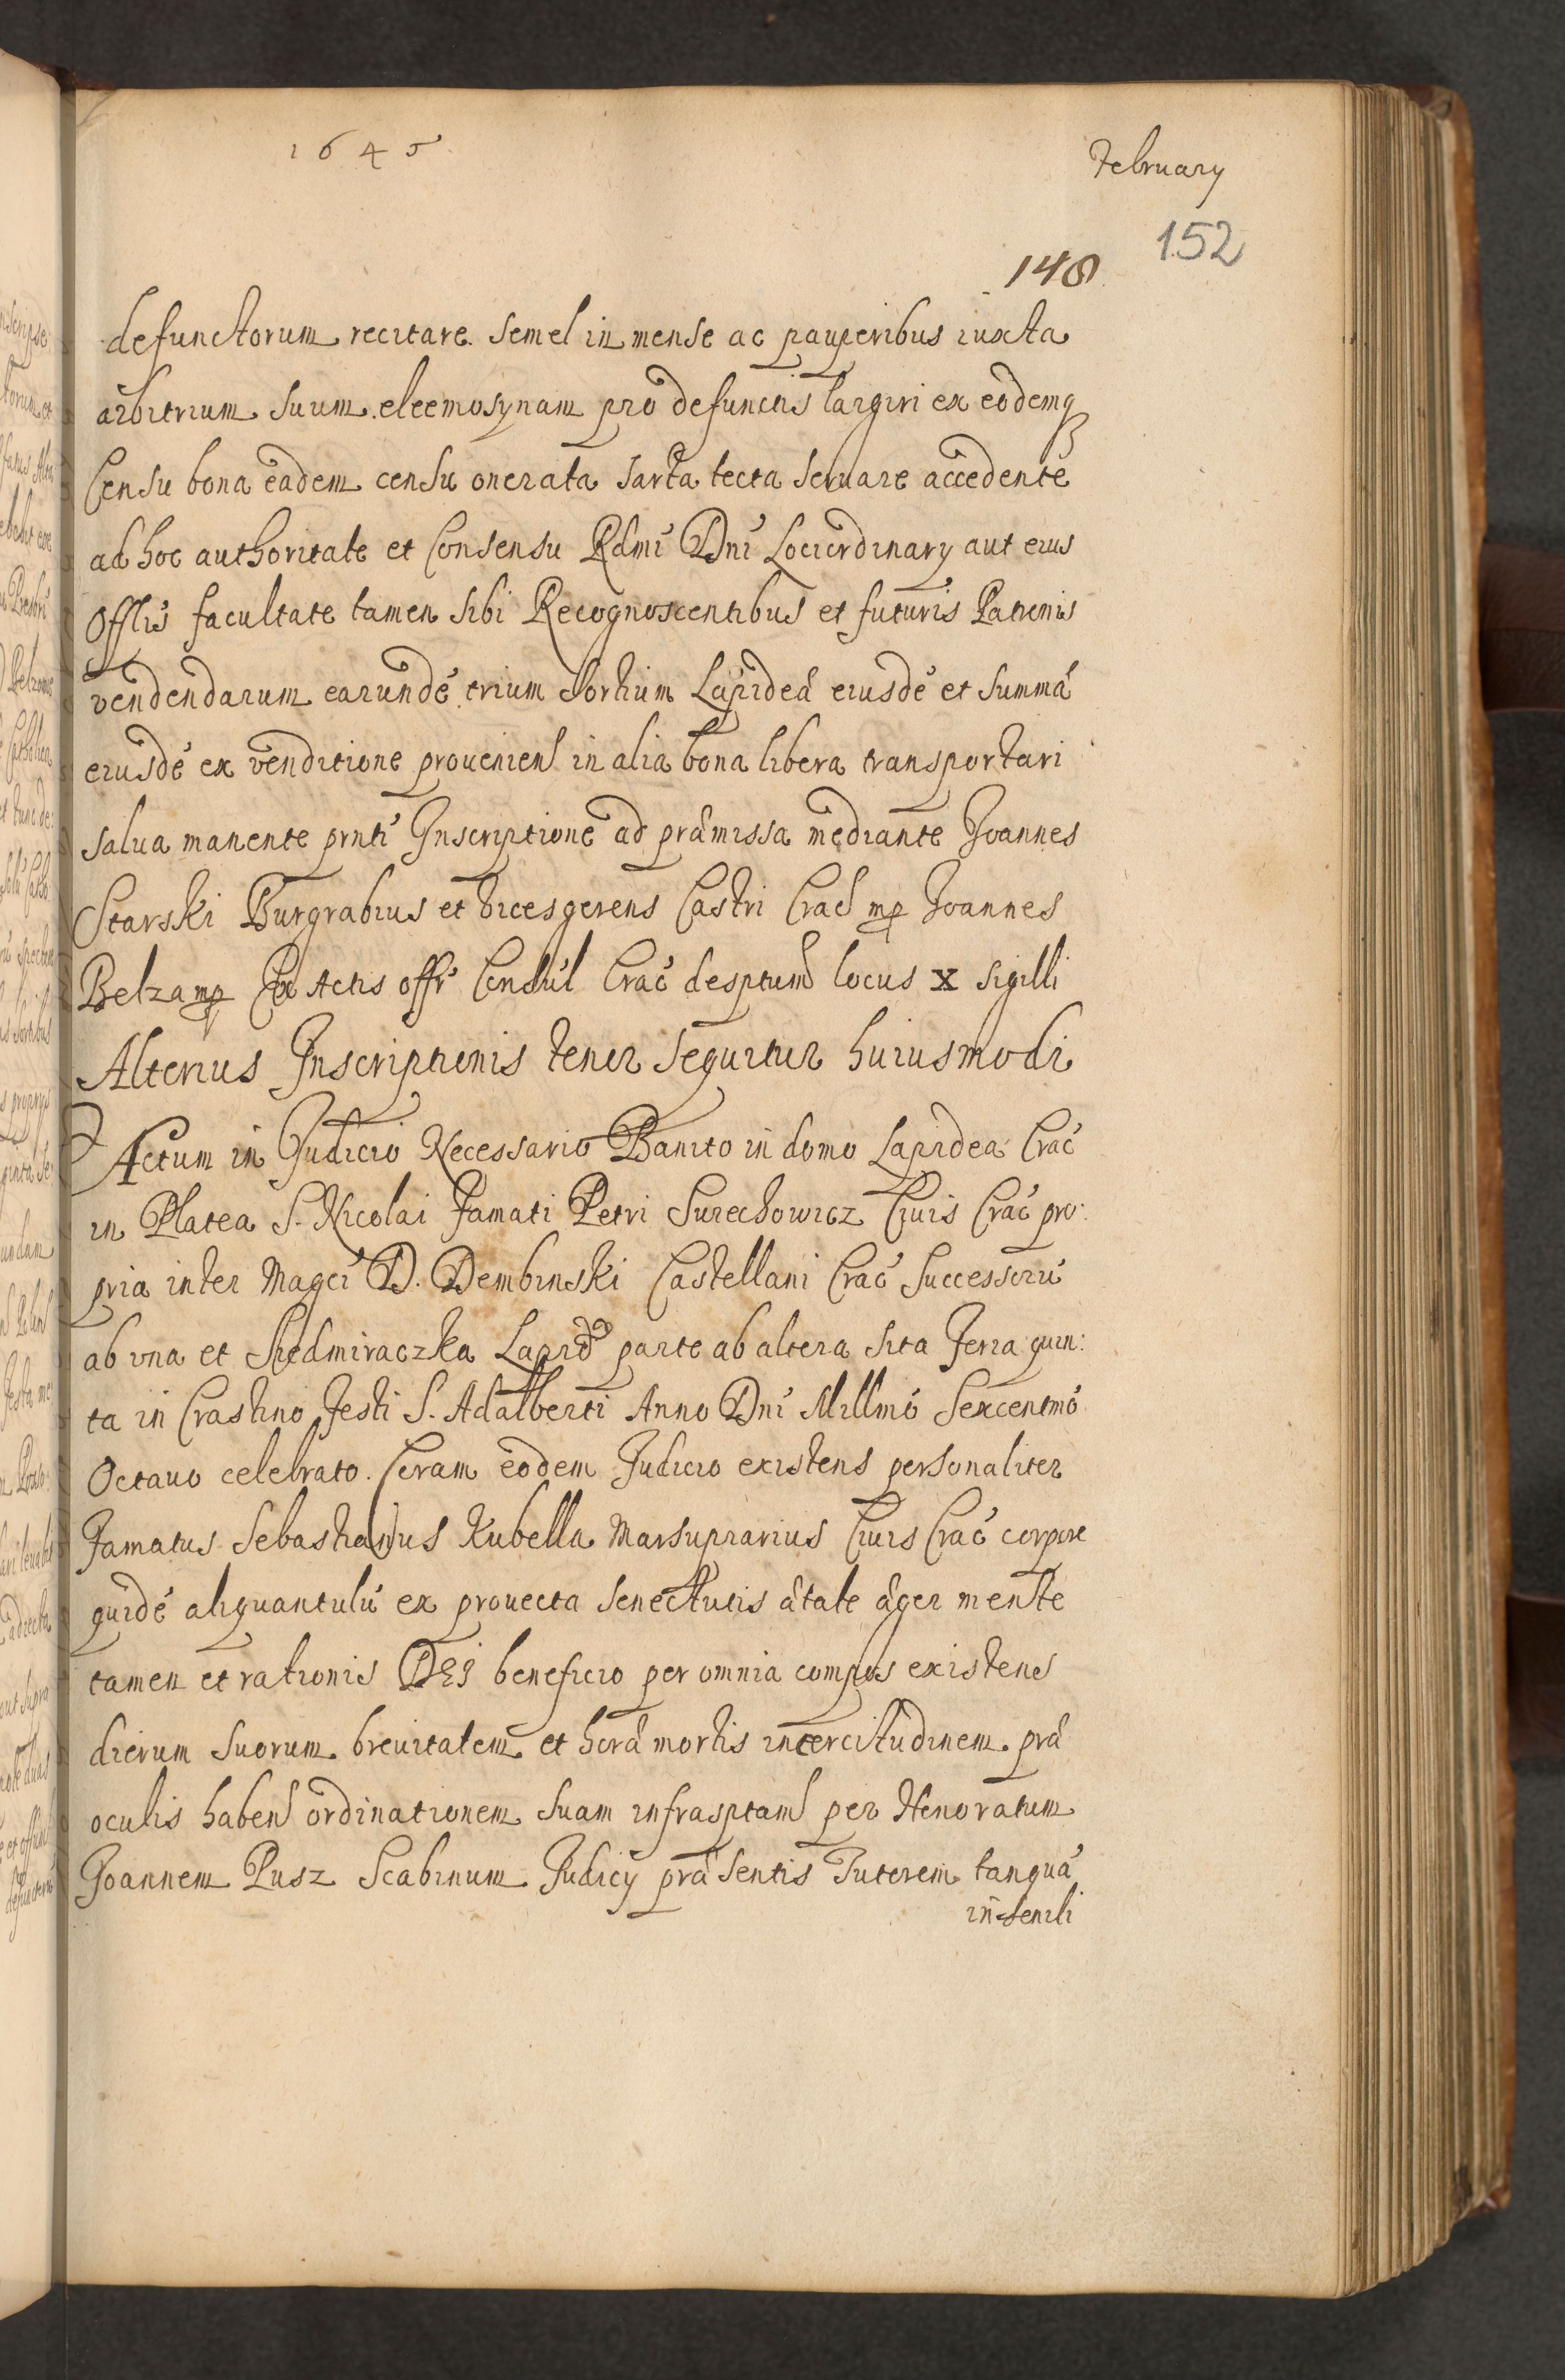 1645
February
152
148
defunctorum recitare semel in mense ac pauperibus iuxta
arbitrium suum eleemosynam pro defunctis largiri ex eodemq
Censu bona eadem censu onerata sarta tecta seruare accedente
ad hoc authoritate et Consensu Rdmi Dni Lociordinary aut eius
Offlis facultate tamen sibi Recognoscentibus et futuris Patronis
vendendarum earundé trium sortium Lapideâ eiusdé et summâ
eiusdé ex venditione prouenien in alia bona libera transportari
salua manente prnti Inscriptione ad prâmissa mediante Joannes
Starski Burgrabius et vicesgerens Castri Crac mp Joannes
Belza mp Ex Actis offi Consul Crac desptum locus x sigilli
Alterius Inscriptionis tenor sequitur huiusmodi
Actum in Judicio Necessario Banito in domo Lapidea Crac
in Platea S. Nicolai Famati Petri Surechowicz Ciuis Crac pro:
pria inter Magci D. Dembinski Castellani Crac Successorú
ab vna et Siedmiraczka Lapid parte ab altera sita Feria quin:
ta in Crastino Festi S. Adalberti Anno Dni Millmo Sexcentmo
Octauo celebrato. Coram eodem Judicio existens personaliter
Famatus Sebastianus Kubella Marsupiarius Ciuis Crac corpore
quidé aliquantulú ex prouecta senectutis âtate âger mente
tamen et rationis DEI beneficio per omnia compos existens
dierum suorum breuitatem et horâ mortis incercitudinem prâ
oculis haben ordinationem suam infrasptam per Honoratum
Joannem Pusz Scabinum Judicy prâsentis Tutorem tanquá
in senili